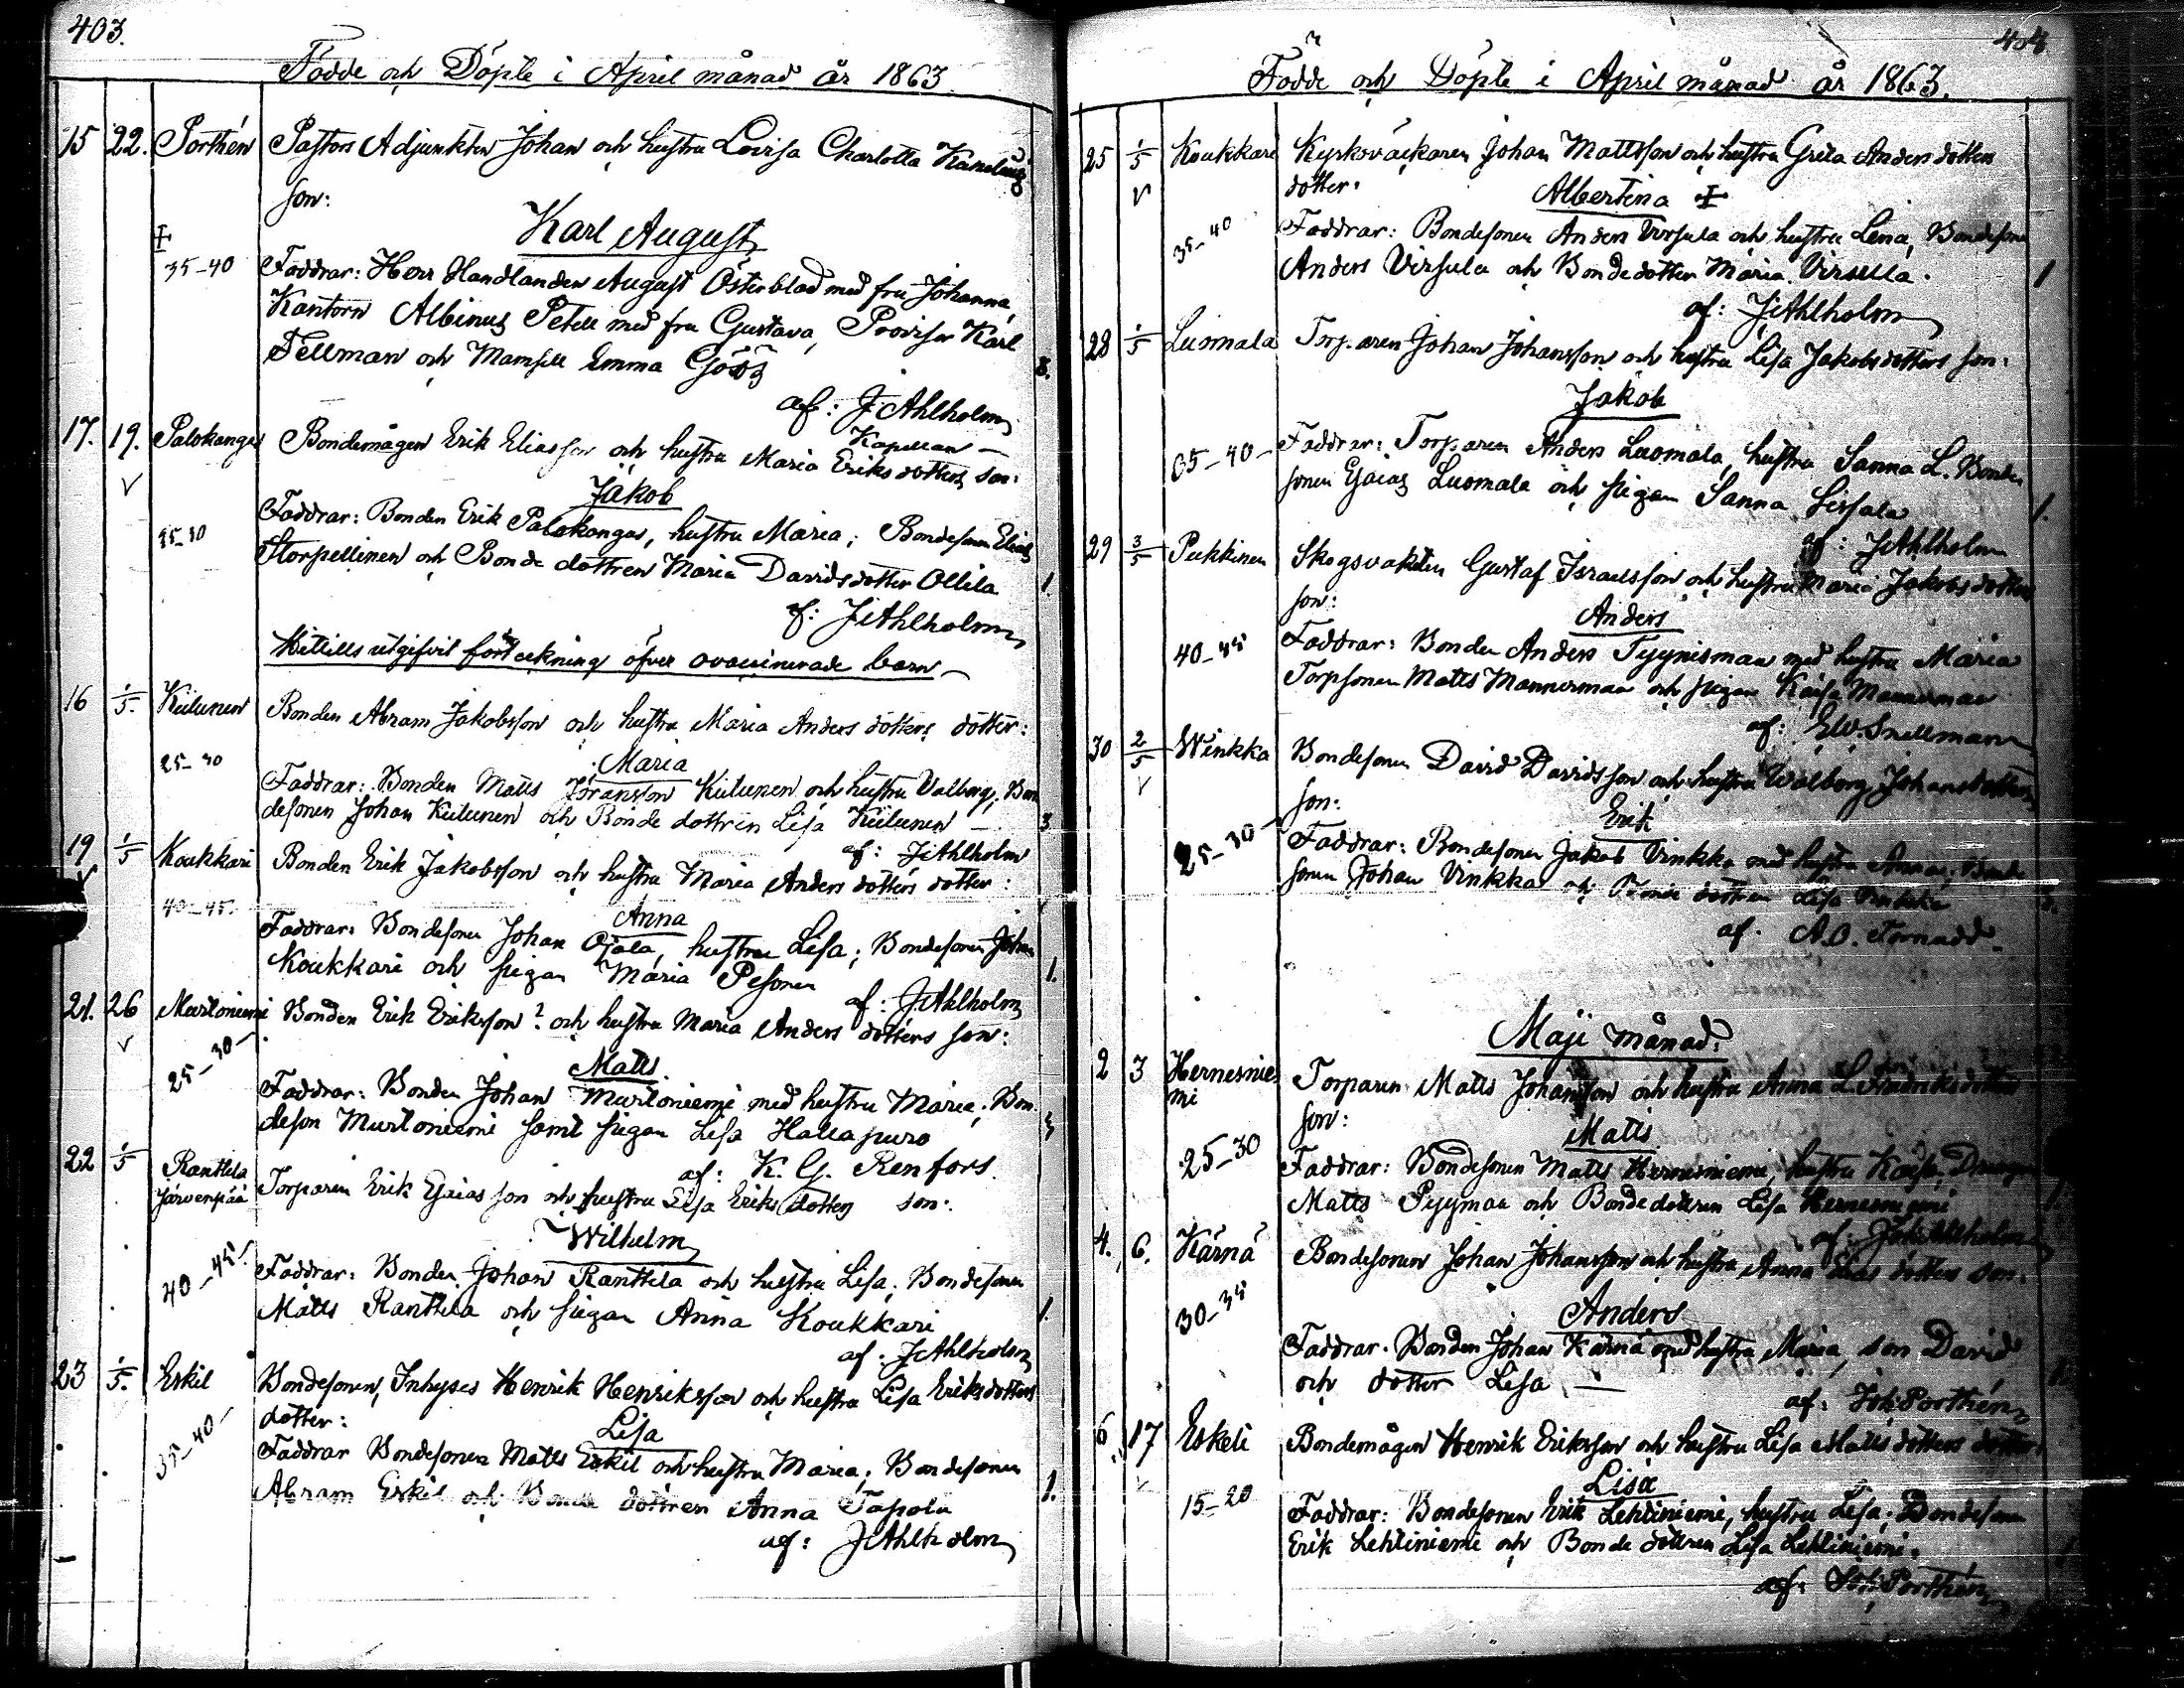 403.
Födde och Döpte i April månad år 1863
15 22. Porthén Pastors Adjunkten Johan och hustru Lovisa Charlotta
son:
Karl August
35-40 Faddrar: Herr Handlanden August Österblad med fru Johanna,
Kantorn Albinus Petell med fru Gustava, Provisor Karl
Fellman och Mamsell Emma Göös 8.
af: J. Ahlholm
Kapellan
17. 19. Palokangas Bondemågen Erik Eliasson och hustru Maria Eriksdotters son:
Jakob
25-30 Faddrar: Bonden Erik Palokangas, hustru Maria; Bondesonen Elias
Storpellinen och Bonde dottren Maria Davidsdotter Ollila 1
af: J Ahlholm
Hittills utgifvit förteckning öfver ovaccinerade barn
16 1/5. Kiilunen Bonden Abram Jakobsson och hustru Maria Anders dotters dotter:
Maria
25-30 Faddrar: Bonden Matts Göransson Kiilunen och hustru Valborg, Bon
desonen Johan Kiilunen och Bonde dottren Lisa Kiilunen 3
af: J Ahlholm
19 1/5 Koukkari Bonden Erik Jakobsson och hustru Maria Anders dotters dotter:
Anna
40-45. Faddrar: Bondesonen Johan Ojala, hustru Lisa; Bondesonen Johan
Koukkari och pigan Maria Pesonen 1.
af: J Ahlholm
21. 26 Murtoniemi Bonden Erik Eriksson? och hustru Maria Anders dotters son:
Matts.
25-30 Faddrar: Bonden Johan Murtoniemi med hustru Maria, Bon
deson Murtoniemi samt pigan Lisa Hallapuro 3
af: K. G. Renfors.
22 1/5 Ranttila Järvenpää Torparen Erik Esaias son och hustru Lisa Eriks dotters son:
Wilhelm
40-45. Faddrar: Bonden Johan Ranttila och hustru Lisa, Bondesonen
Matts Ranttila och pigan Anna Koukkari 1.
af: J Ahlholm
23 1/5. Eskil Bondesonen, Inhyses Henrik Henriksson och hustru Lisa Eriksdotters
dotter:
Lisa
35-40 Faddrar Bondesonen Matts Eskil och hustru Maria; Bondesonen
Abram Eskil och Bonde dottren Anna Tapola 1.
af: J Ahlholm
404
Födde och Döpte i April månad år 1863.
25 1/5 Koukkari Kyrkoväktaren Johan Mattsson och hustru Greta Anders dotters
dotter:
Albertina
35-40 Faddrar: Bondesonen Anders Virsula och hustru Lena, Bondesonen
Anders Virsula och Bondedotter Maria Virsula. 1
af: J Ahlholm
28 1/5 Luomala Torparen Johan Johansson och hustru Lisa Jakobsdotters son:
Jakob
35-40 Faddrar: Torparen Anders Luomala, hustru Sanna L. Bonde
sonen Esaias Luomala och pigan Sanna 1.
af: J Ahlholm
29 3/5 Pukkinen Skogsvakten Gustaf Israelsson och hustru Maria Jakobsdotters
son:
Anders
40-45 Faddrar: Bonden Anders Tyynismaa med hustru Maria
Torpsonen Matts Mannermaa och pigan Kaisa Mannermaa
af: E W. Snellmann
30 2/5 Winkka Bondesonen David Davidsson och hustru Walborg Johansdotters
son:
Erik
25-30 Faddrar: Bondesonen Jakob Vinkka med hustru Anna; Bonde
sonen Johan Vinkka och Bonde dottren Lisa Vinkka
af. A.O. Tornudd
Maji månad.
2 3 Hernesnie
mi Torparen Matts Johansson och hustru Anna L Fredriksdotters
son:
Matts
25-30 Faddrar: Bondesonen Matts Hernesniemi, hustru Kaisa, Drängen
Matts Pyymaa och Bondedottren Lisa Hernesniemi
af: Joh Ahlholm
4. 6. Kärnä Bondesonen Johan Johansson och hustru Anna Elias dotters son.
Anders
30-35 Faddrar. Bonden Johan Kärnä med hustru Maria, son David
och dotter Lisa
af: Joh Porthén
6 17 Eskeli Bondemågen Henrik Eriksson och hustru Lisa Matts dotters dotter.
Lisa
15-20 Faddrar: Bondesonen Erik Lehtiniemi, hustru Lisa; Bondesonen
Erik Lehtiniemi och Bonde dottren Lisa Lehtiniemi.
af: Joh Porthén